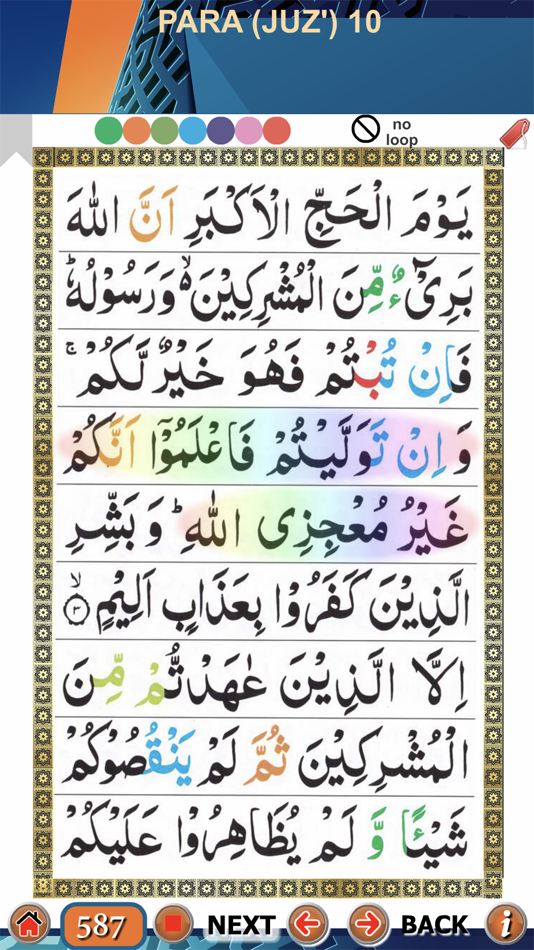 PARA (JUZ') 10
no
loop
يَوْمَ الْحَجِّ الْاَكْبَرِ اَنَّ اللّٰهَ
بَرِیْٓءٌ مِّنَ الْمُشْرِكِیْنَ ۙ۬ وَرَسُوْلُهٗ ؕ
فَاِنْ تُبْتُمْ فَهُوَ خَیْرٌ لَّكُمْ ۚ
وَ اِنْ تَوَلَّیْتُمْ فَاعْلَمُوْۤا اَنَّكُمْ
غَیْرُ مُعْجِزِی اللّٰهِ ؕ وَ بَشِّرِ
الَّذِیْنَ كَفَرُوْا بِعَذَابٍ اَلِیْمٍ ۙ﴿۳﴾
اِلَّا الَّذِیْنَ عٰهَدْتُّمْ مِّنَ
الْمُشْرِكِیْنَ ثُمَّ لَمْ یَنْقُصُوْكُمْ
شَیْـًٔا وَّ لَمْ یُظَاهِرُوْا عَلَیْكُمْ
587 NEXT BACK i